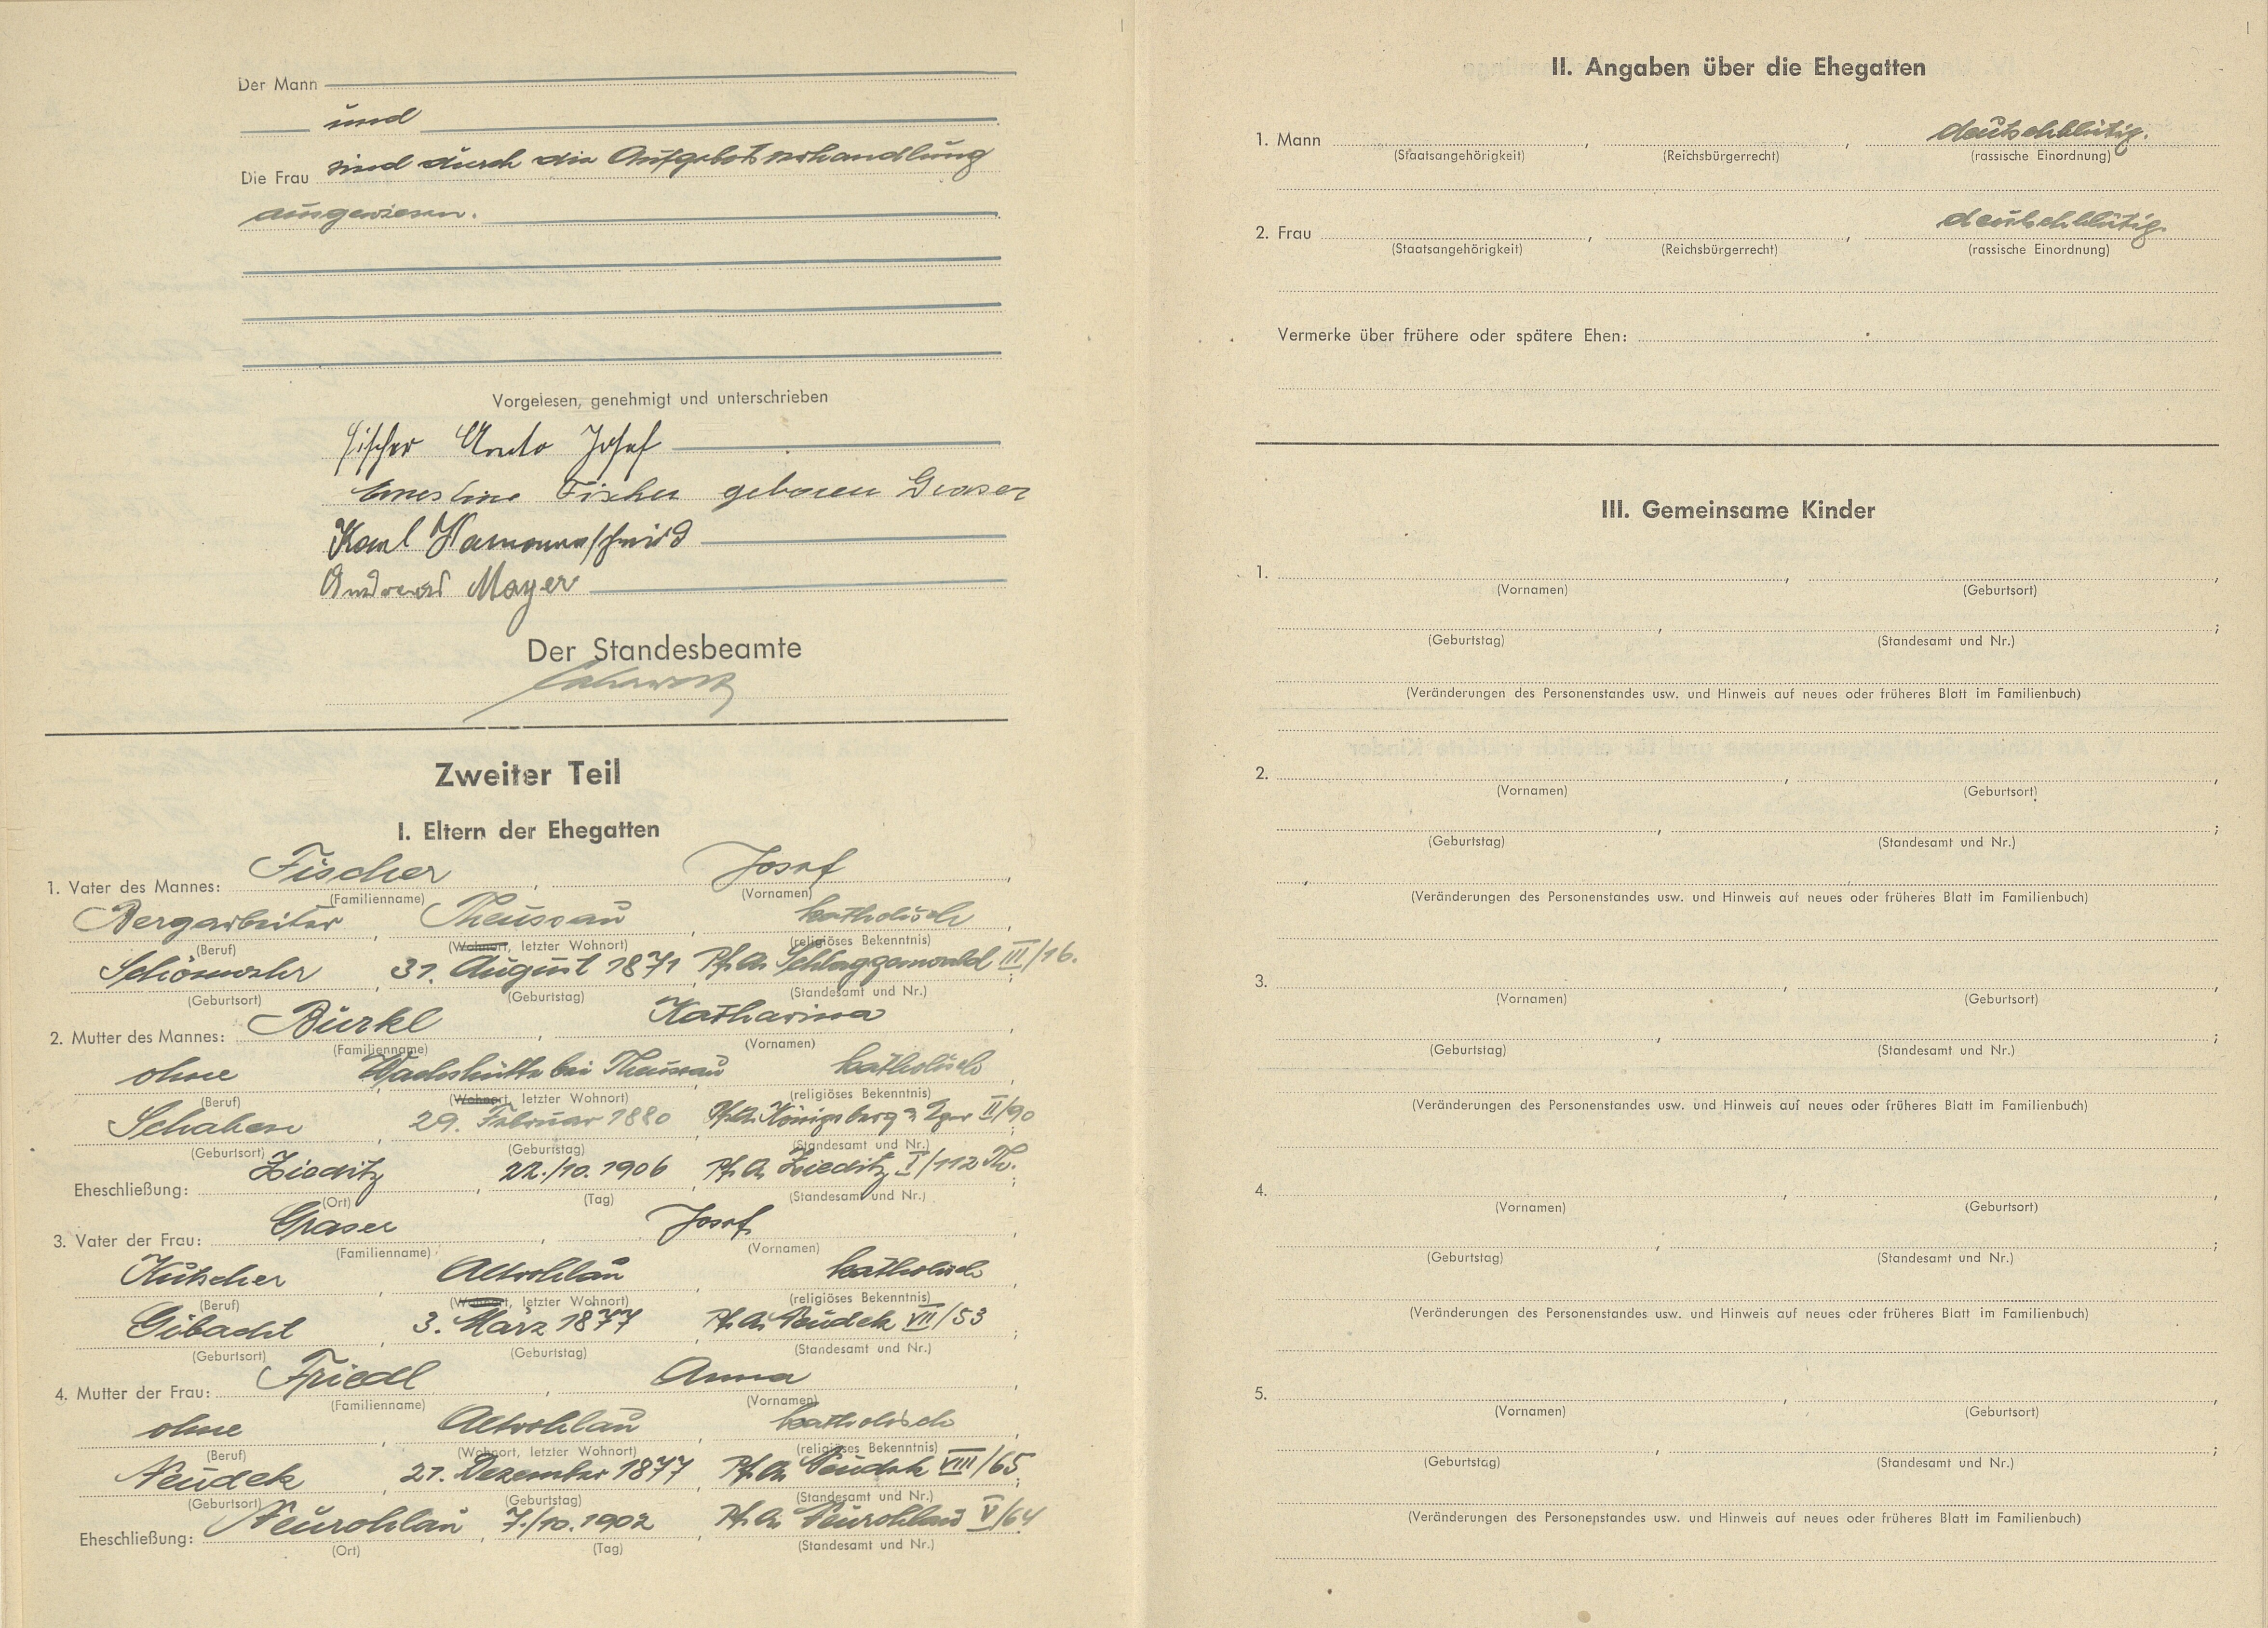 Der Mann
und
Die Frau sind durch die Aufgebotsverhandlung
ausgewiesen.
Vorgelesen, genehmigt und unterschrieben
Fischer Josef
Ernestine Fischer geboren Graser
Karl Hammerschmid
Andreas Mayer
Der Standesbeamte
Zweiter Teil
I. Eltern der Ehegatten
1. Vater des Mannes: Fischer, Josef,
(Familienname) (Vornamen)
Bergarbeiter, Theussau, katholisch,
(Beruf) (Wohnort, letzter Wohnort) (religiöses Bekenntnis)
Schönwehr, 31. August 1871, Pf.A. Schlaggenwald III/16.;
(Geburtsort) (Geburtstag) (Standesamt und Nr.)
2. Mutter des Mannes: Bürkl, Katharina,
(Familienname) (Vornamen)
ohne, Wachshütte bei Theussau, katholisch,
(Beruf) (Wohnort, letzter Wohnort) (religiöses Bekenntnis)
Schaben, 29. Februar 1880, Pf.A. Königsberg a. Eger II/90
(Geburtsort) (Geburtstag) (Standesamt und Nr.)
Eheschließung: Zieditz, 22./10.1906, Pf.A. Zieditz I/112 Th.;
(Ort) (Tag) (Standesamt und Nr.)
3. Vater der Frau: Graser, Josef,
(Familienname) (Vornamen)
Kutscher, Altrohlau, katholisch,
(Beruf) (Wohnort, letzter Wohnort) (religiöses Bekenntnis)
Gibacht, 3. März 1877, Pf.A. Neudek VII/53;
(Geburtsort) (Geburtstag) (Standesamt und Nr.)
4. Mutter der Frau: Friedl, Anna,
(Familienname) (Vornamen)
ohne, Altrohlau, katholisch,
(Beruf) (Wohnort, letzter Wohnort) (religiöses Bekenntnis)
Neudek, 21. Dezember 1877, Pf.A. Neudek VIII/65;
(Geburtsort) (Geburtstag) (Standesamt und Nr.)
Eheschließung: Neurohlau, 7./10.1902, Pf.A. Neurohlau V/64.
(Ort) (Tag) (Standesamt und Nr.)
II. Angaben über die Ehegatten
1. Mann , , deutschblütig.
(Staatsangehörigkeit) (Reichsbürgerrecht) (rassische Einordnung)
2. Frau , , deutschblütig.
(Staatsangehörigkeit) (Reichsbürgerrecht) (rassische Einordnung)
Vermerke über frühere oder spätere Ehen:
III. Gemeinsame Kinder
1. , ,
(Vornamen) (Geburtsort)
, ;
(Geburtstag) (Standesamt und Nr.)
(Veränderungen des Personenstandes usw. und Hinweis auf neues oder früheres Blatt im Familienbuch)
2. , ,
(Vornamen) (Geburtsort)
, ;
(Geburtstag) (Standesamt und Nr.)
(Veränderungen des Personenstandes usw. und Hinweis auf neues oder früheres Blatt im Familienbuch)
3. , ,
(Vornamen) (Geburtsort)
, ;
(Geburtstag) (Standesamt und Nr.)
(Veränderungen des Personenstandes usw. und Hinweis auf neues oder früheres Blatt im Familienbuch)
4. , ,
(Vornamen) (Geburtsort)
, ;
(Geburtstag) (Standesamt und Nr.)
(Veränderungen des Personenstandes usw. und Hinweis auf neues oder früheres Blatt im Familienbuch)
5. , ,
(Vornamen) (Geburtsort)
, ;
(Geburtstag) (Standesamt und Nr.)
(Veränderungen des Personenstandes usw. und Hinweis auf neues oder früheres Blatt im Familienbuch)